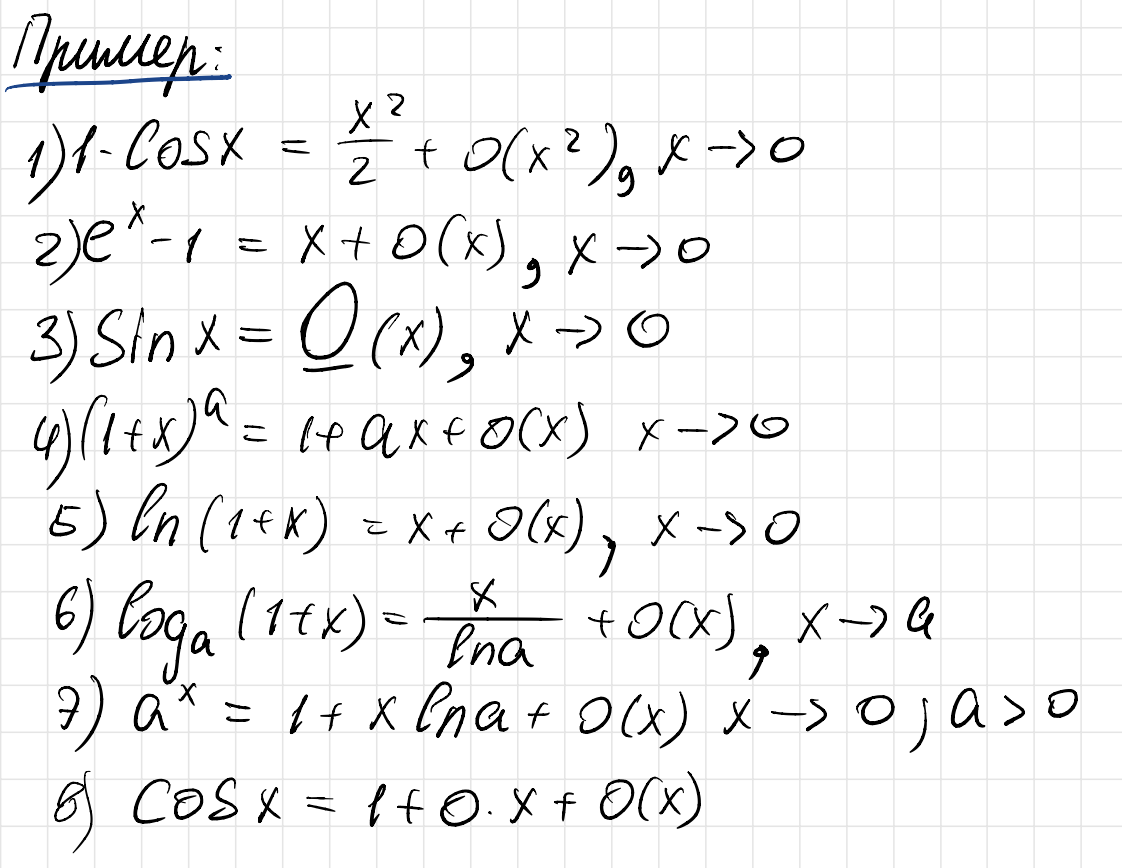 Пример:
1) 1 - cos x = x²/2 + o(x²), x → 0
2) eˣ - 1 = x + o(x), x → 0
3) Sin x = O(x), x → 0
4) (1+x)ᵃ = 1 + ax + o(x) x → 0
5) ln(1+x) = x + o(x), x → 0
6) logₐ(1+x) = x/ln a + o(x), x → a
7) aˣ = 1 + x ln a + o(x) x → 0; a > 0
8) cos x = 1 + 0·x + o(x)